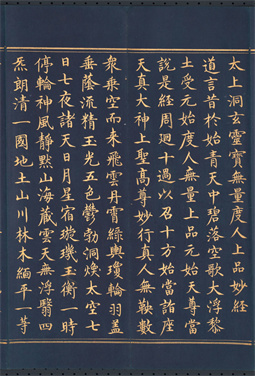 太上洞玄靈寶無量度人上品妙經
道言昔於始青天中碧落空歌大浮黎
土受元始度人無量上品元始天尊當
說是經周迴十過以召十方始當詣座
天真大神上聖高尊妙行真人無鞅數
衆乘空而來飛雲丹霄綠輿瓊輪羽蓋
垂蔭流精玉光五色鬱勃洞煥太空七
日七夜諸天日月星宿璇璣玉衡一時
停輪神風靜默山海藏雲天無浮翳四
炁朗清一國地土山川林木緬平一等